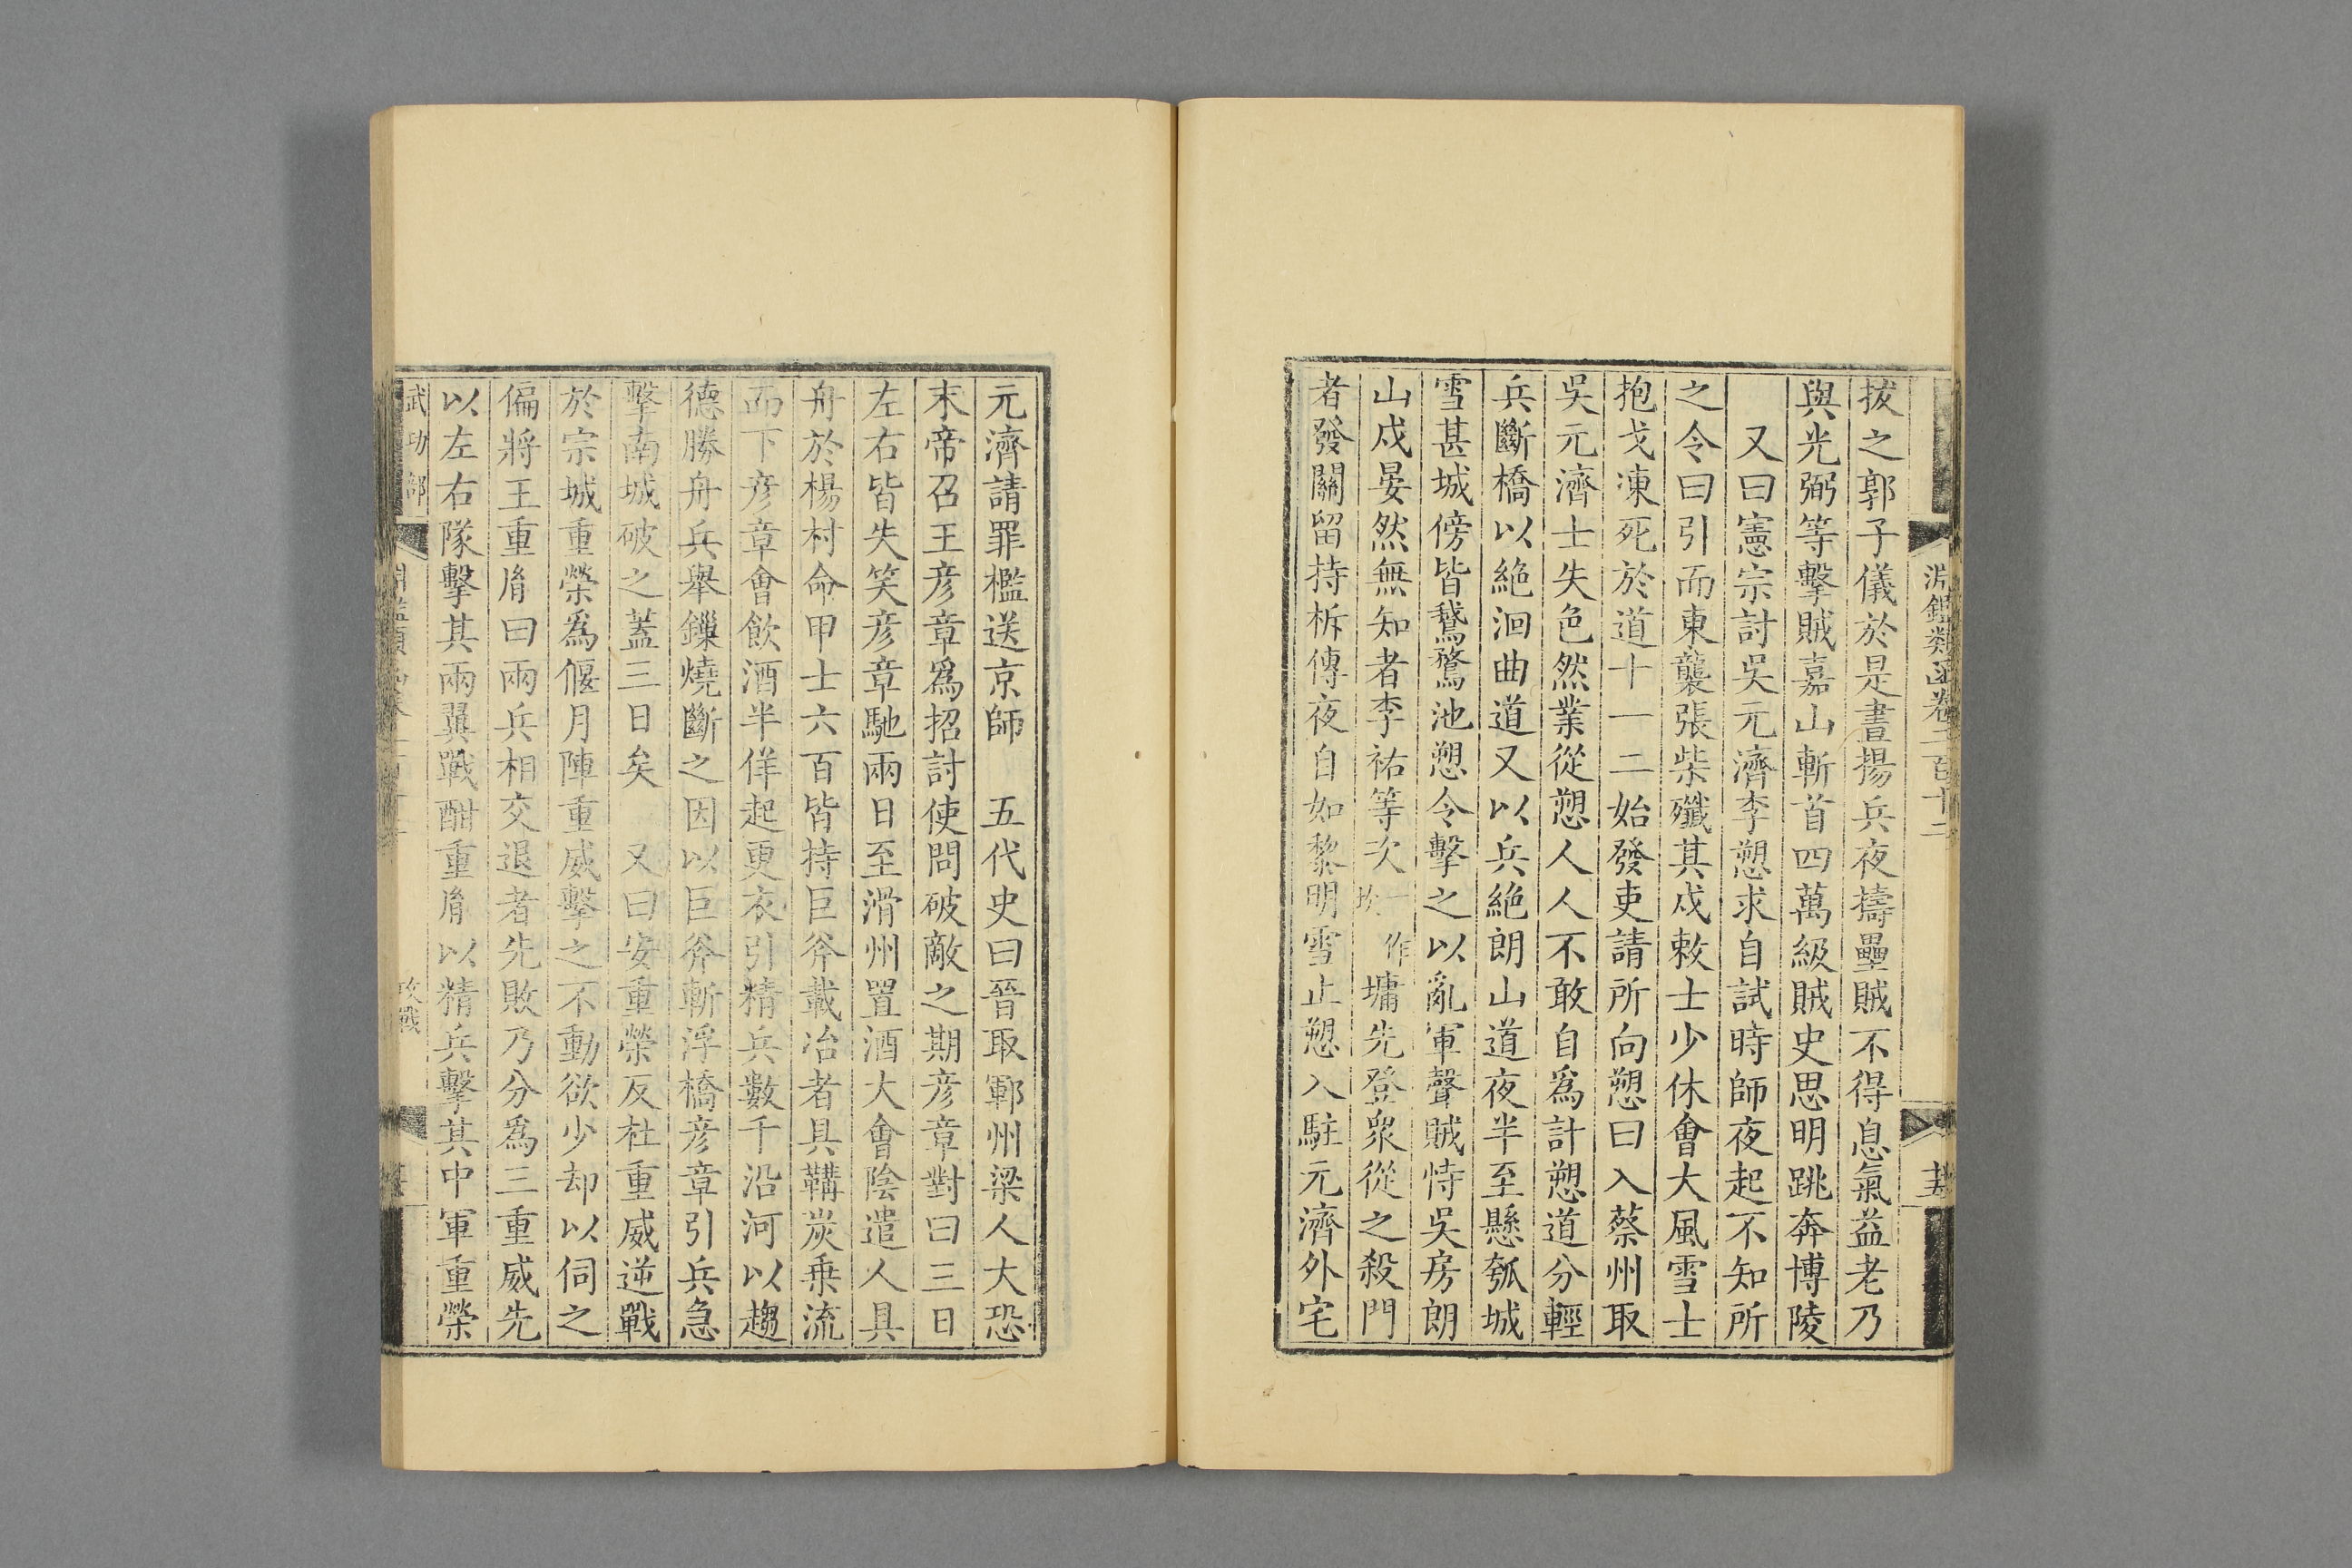 淵鑑類函卷二百十二
拔之郭子儀於是晝揚兵夜擣壘賊不得息氣益老乃
與光弼等擊賊嘉山斬首四萬級賊史思明跳奔博陵
又曰憲宗討吳元濟李愬求自試時師夜起不知所
之令曰引而東襲張柴殲其戍敕士少休會大風雪士
抱戈凍死於道十一二始發吏請所向愬曰入蔡州取
吳元濟士失色然業從愬人人不敢自爲計愬道分輕
兵斷橋以絕洄曲道又以兵絕朗山道夜半至懸瓠城
雪甚城傍皆鵝鶩池愬令擊之以亂軍聲賊恃吳房朗
山戍晏然無知者李祐等次一作坎墉先登衆從之殺門
者發關留持柝傳夜自如黎明雪止愬入駐元濟外宅
元濟請罪檻送京師　五代史曰晉取鄆州梁人大恐
末帝召王彦章爲招討使問破敵之期彦章對曰三日
左右皆失笑彦章馳兩日至滑州置酒大會陰遣人具
舟於楊村命甲士六百皆持巨斧載冶者具鞲炭乗流
而下彦章會飲酒半佯起更衣引精兵數千沿河以趨
德勝舟兵舉鏁燒斷之因以巨斧斬浮橋彦章引兵急
擊南城破之蓋三日矣　又曰安重榮反杜重威逆戰
於宗城重榮爲偃月陣重威擊之不動欲少却以伺之
偏將王重胤曰兩兵相交退者先敗乃分爲三重威先
以左右隊擊其兩翼戰酣重胤以精兵擊其中軍重榮
武功部　攻戰